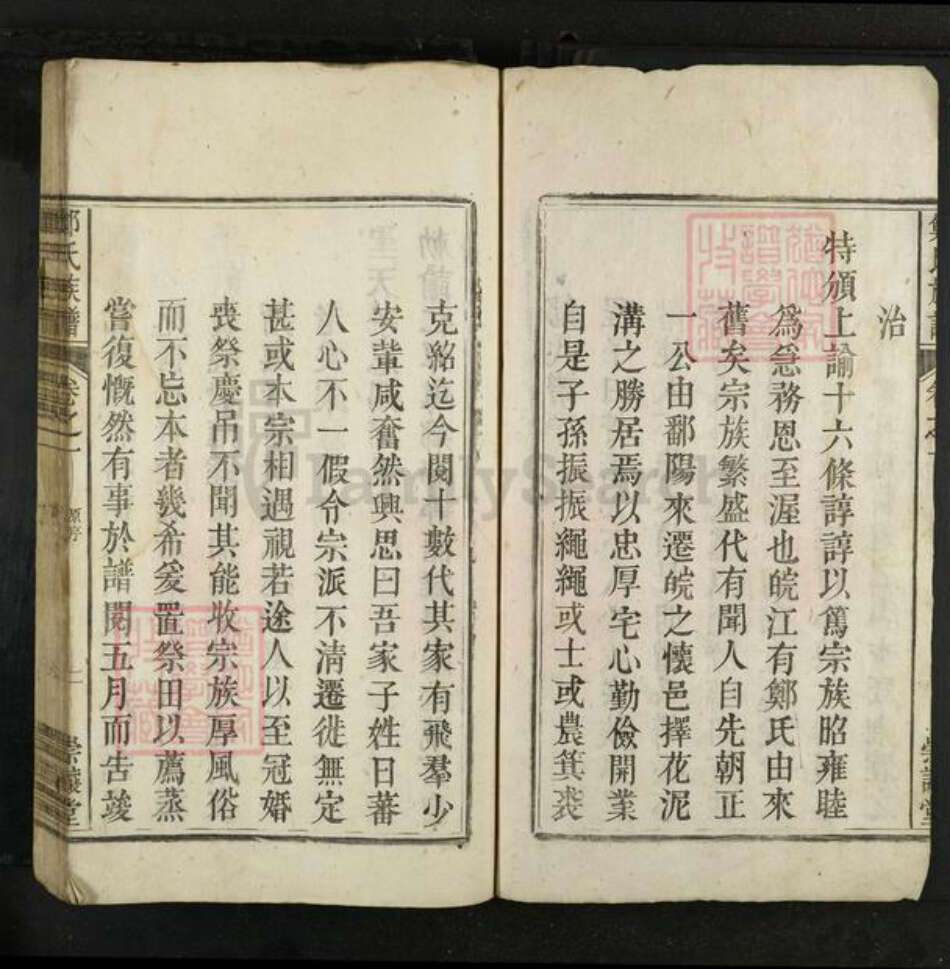 治
特頒上諭十六條諄諄以篤宗族昭雍睦
爲急務恩至渥也皖江有鄭氏由來
舊矣宗族繁盛代有聞人自先朝正
一公由鄱陽來遷皖之懷邑擇花泥
溝之勝居焉以忠厚宅心勤儉開業
自是子孫振振繩繩或士或農箕裘
克紹迄今閱十數代其家有飛羣少
安軰咸奮然興思曰吾家子姓日蕃
人心不一假令宗派不淸遷徙無定
甚或本宗相遇視若途人以至冠婚
喪祭慶吊不聞其能收宗族厚風俗
而不忘本者幾希爰置祭田以薦蒸
嘗復慨然有事於譜閱五月而告竣
鄭氏族譜
卷之一
原序
二
FamilySearch